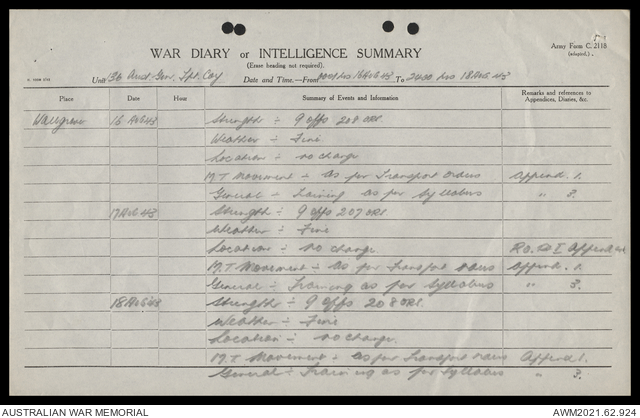 Army Form C. 2118
(adapted.)
WAR DIARY or INTELLIGENCE SUMMARY
(Erase heading not required).
Unit 136 Aust Gen. Tpt. Coy Date and Time.—From 0001 hrs 16 AUG 43 To 2400 hrs 18 AUG 43
Place Date Hour Summary of Events and Information Remarks and references to Appendices, Diaries, &c.
Wallgrove 16 AUG 43 Strength :- 9 offs 208 ORS.
Weather :- Fine
Location :- no change
M.T. Movement :- as for Transport orders Append. 1.
General :- Training as for Syllabus " 3.
17 AUG 43 Strength :- 9 offs 207 ORS.
Weather :- Fine
Location :- no change
M.T. Movement :- as for Transport orders Append. 1.
General :- Training as for Syllabus " 3.
18 AUG 43 Strength :- 9 offs 208 ORS.
Weather :- Fine
Location :- no change.
M.T. Movement :- as for Transport orders Append 1.
General :- Training as for Syllabus " 3.
AUSTRALIAN WAR MEMORIAL AWM2021.62.924